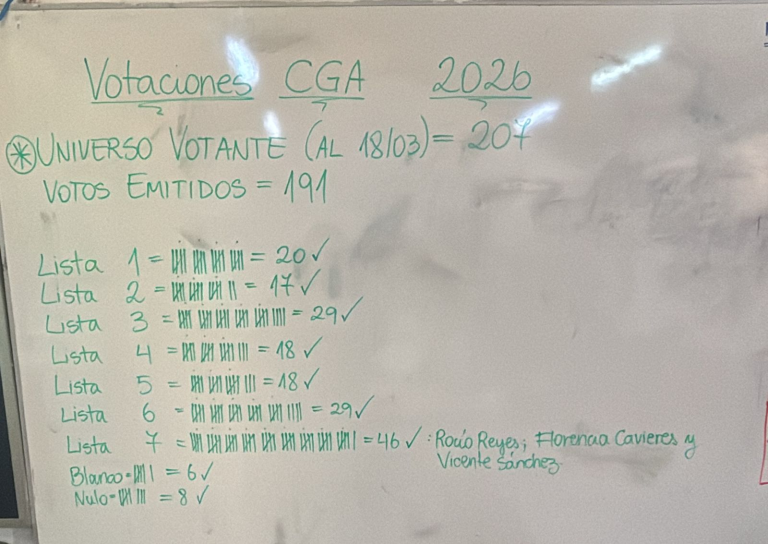 Votaciones CGA 2026
* UNIVERSO VOTANTE (AL 18/03) = 207
VOTOS EMITIDOS = 191
Lista 1 = 20 ✓
Lista 2 = 17 ✓
Lista 3 = 29 ✓
Lista 4 = 18 ✓
Lista 5 = 18 ✓
Lista 6 = 29 ✓
Lista 7 = 46 ✓ : Rocío Reyes; Florencia Cavieres y
Vicente Sánchez
Blanco = 6 ✓
Nulo = 8 ✓